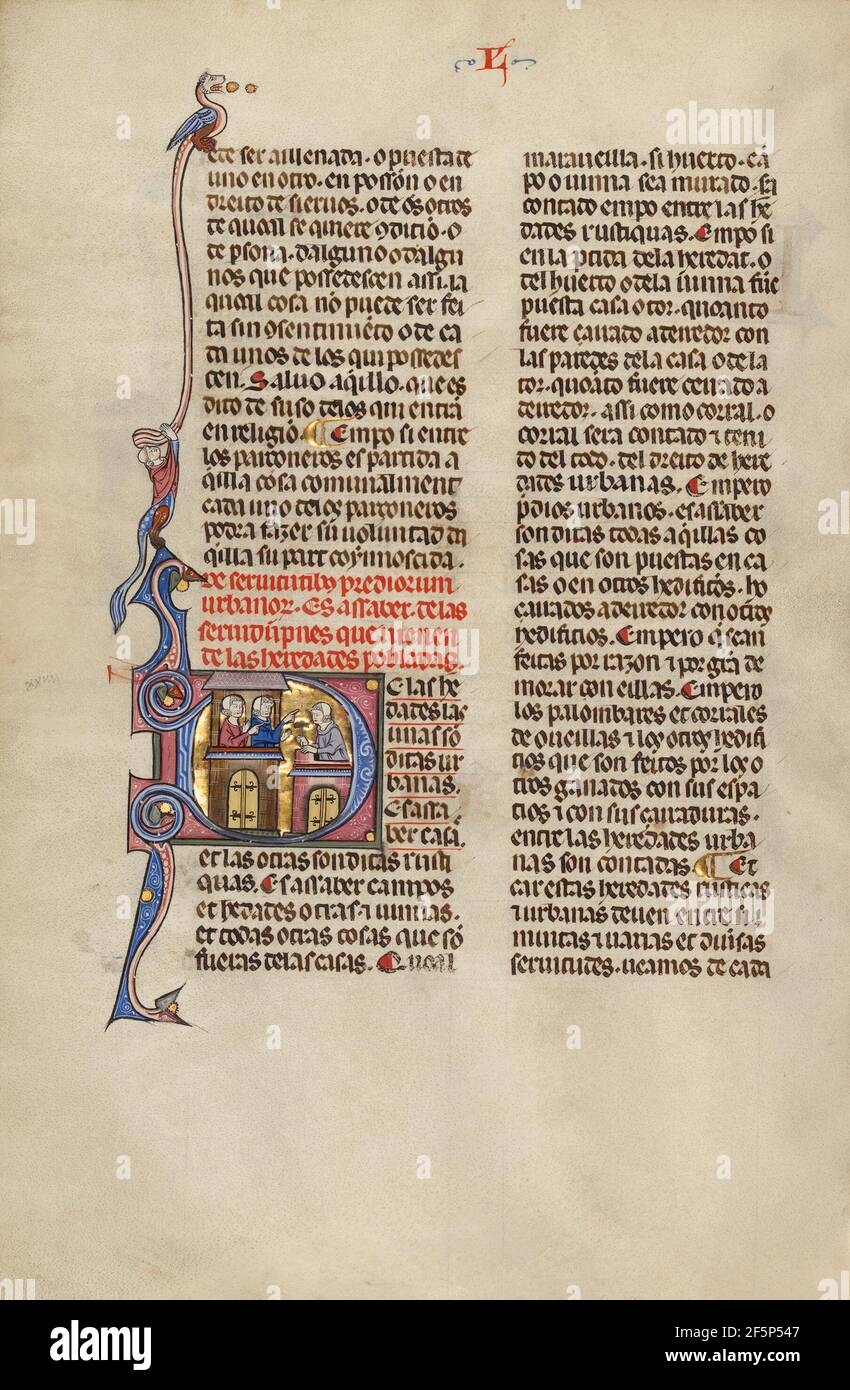 L
ete ser allienada · o puesta de
uno en otro · en possōn o en
dreito de sieruos · o de ōs otros
de quall se quiere ꝯdiciō · o
de psona · dalguno o dalgu
nos que possedescen assi · la
quoal cosa nō puede ser fei
ta sin ꝯsentimiēto o de ca
da unos de los qui possedes
cen. Saluo aq̄llo · que es
dito de suso delos qui entrā
en religiō. ¶ Empo si entre
los parçoneros es partida a
q̄lla cosa comunalment
cada uno delos parçoneros
podra fazer su voluntad dā
q̄lla su part coynnoscida.
De seruitutibꝫ prediorum
urbanor · Es assaber · de las
seruidūpnes que uienen
de las heredades pobladas.
D
e las he
dades las
unas sō
ditas ur
banas.
Es assa
ber casā.
et las otras son ditas rusti
quas. Es assaber campos
et hedades otras ⁊ uinnas.
et todas otras cosas que sō
fueras de las casas. Quoal
maraueilla · si huerto · cā
po o uinna sea murado · sea
contado empo entre las he
dades rustiquas. Empo si
en la ptida dela heredat · o
del huerto o dela uinna fue
puesta casa o tor · quoanto
fuere çarrado aderredor con
las paredes dela casa o dela
tor · quoāto fuere cerrado a
derredor · assi como corral · o
corral sera contado ⁊ teni
do del todo · del dreito de here
dades urbanas. Empero
p̄dios urbanos · es assaber
son ditas todas aq̄llas co
sas que son puestas en ca
sas o en otros hedificios · ho
çarrados aderredor con otros
hedificios. Empero q̄ sean
feitas por razon ⁊ por grā de
morar con eillas. Empero
los palombares et corrales
de oueillas ⁊ los otros hedifi
cios que son feitos por los o
tros ganados con sus espa
cios ⁊ con sus çarraduras ·
entre las heredades urba
nas son contadas. ¶ Et
car estas heredades rusticas
⁊ urbanas deuen entre si
muntas ⁊ uarias et diuīsas
seruitudes · ueamos de cada
xxiiii
alamy
Image ID: 2F5P547
www.alamy.com